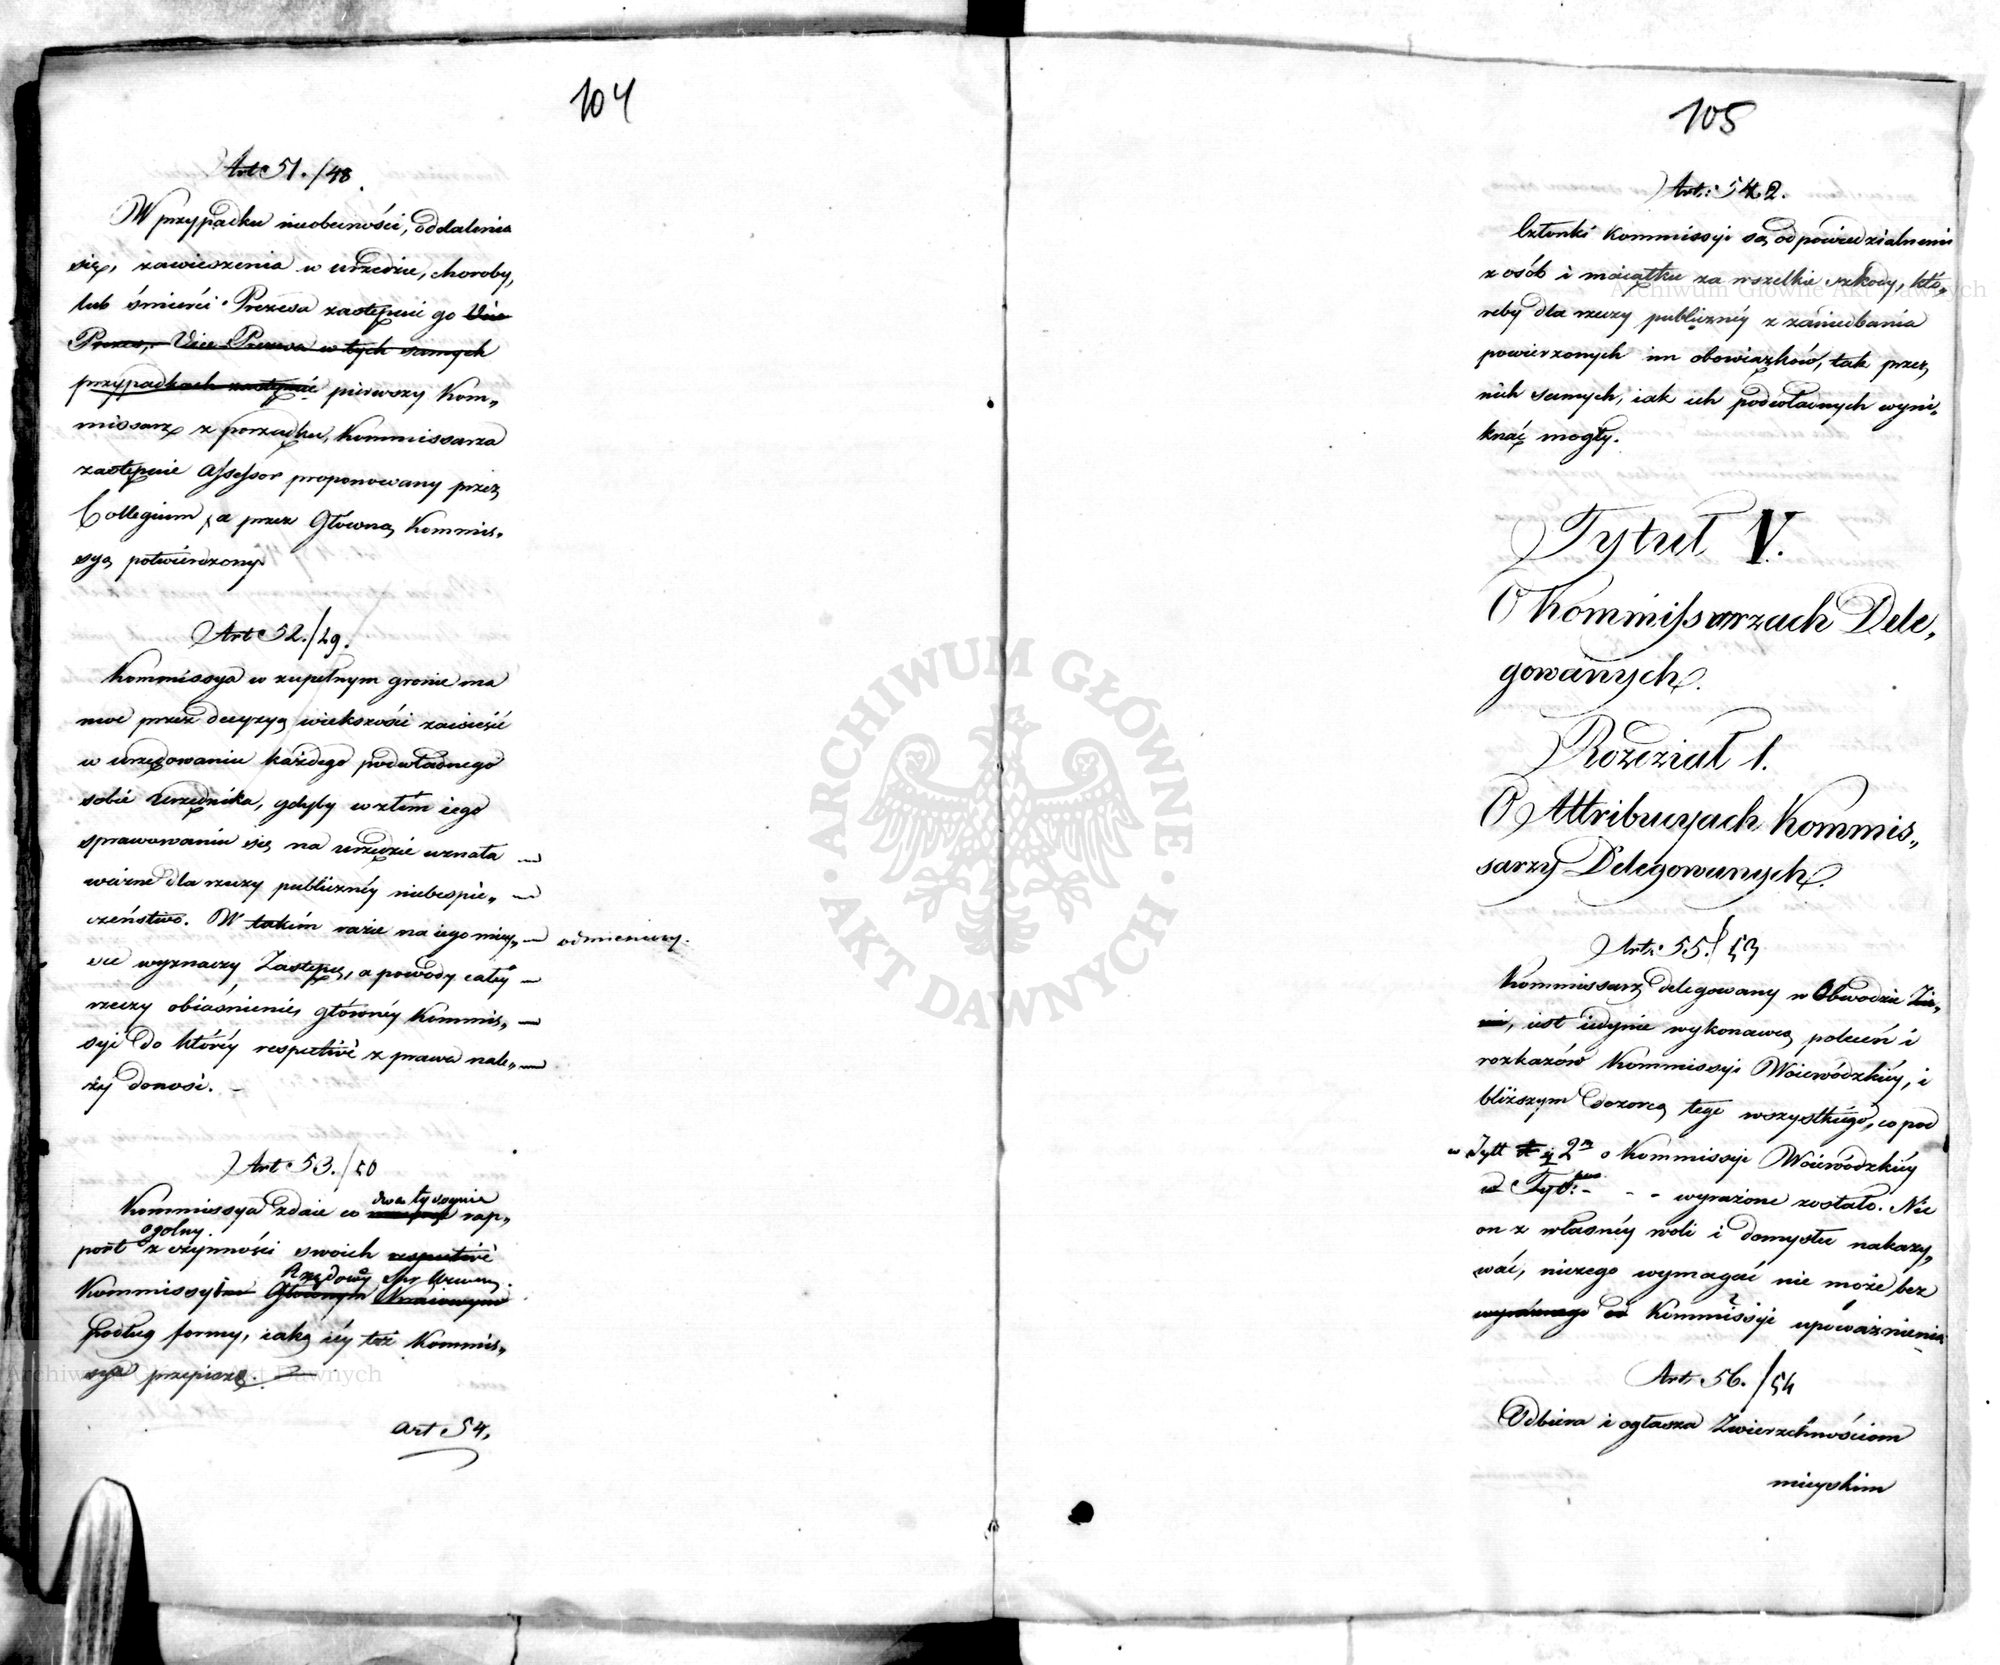 104
Art: 51./48
W przypadku nieobecności, oddalenia
się, zawieszenia w urzędzie, choroby,
lub śmierci Prezesa zastępuie go Vice
Prezes, Vice Prezesa w tych samych
przypadkach zastąpić pierwszy Kom„
missarz z porządku, Kommissarza
zastępuie Assessor proponowany przez
Collegium, a przez Główną Kommis„
syą potwierdzony
Art: 52./49.
Kommissya w zupełnym gronie ma
moc przez decyzyą większości zawiesić
w urzędowaniu każdego podwładnego
sobie Urzędnika, gdyby w złém iego
sprawowaniu się na urzędzie uznała
ważne dla rzeczy publiczney niebespie„
czeństwo. W takim razie na iego miey„
sce wyznaczy Zastępcę, a powody całéy
rzeczy obiaśnienie, głównéy Kommis„
syi do któréy respective z prawa nale„
ży donosi. –
odmieniony.
Art: 53./50
Kommissya zdaie co dwa tygodnie rap„
port ogolny z czynności swoich respectivè
Kommissyi Rządowéy Spr. Wewn.
Głównym Kraiowym
podług formy, iaką iéy też Kommis„
sya przepisze.
Art: 54.
105
Art: 54 2.
Członki Kommissyi są odpowiedzialnemi
z osób i maiątku za wszelkie szkody, któ„
reby dla rzeczy publicznéy z zaniedbania
powierzonych im obowiązków, tak przez
nich samych, iak ich podwładnych wyni„
knąć mogły.
Tytuł V.
O Kommissarzach Dele„
gowanych.
Rozdział 1.
O Attribucyach Kommis„
sarzy Delegowanych.
Art: 55./53
Kommissarz delegowany w Obwodzie
, iest iedynie wykonawcą poleceń i
rozkazów Kommissyi Woiewódzkiéy, i
bliższym dozorcą tego wszystkiego, co pod
w Tytt 2m o Kommissyi Woiewódzkiéy
w Tyt: - - - wyrażone zostało. Nic
on z własnéy woli i domysłu nakazy„
wać, niczego wymagać nie może bez
wyraźnego od Kommissyi upoważnienia
Art: 56./54
Odbiera i ogłasza Zwierzchnościom
mieyskim
ARCHIWUM GŁÓWNE AKT DAWNYCH
Archiwum Główne Akt Dawnych
Archiwum Główne Akt Dawnych